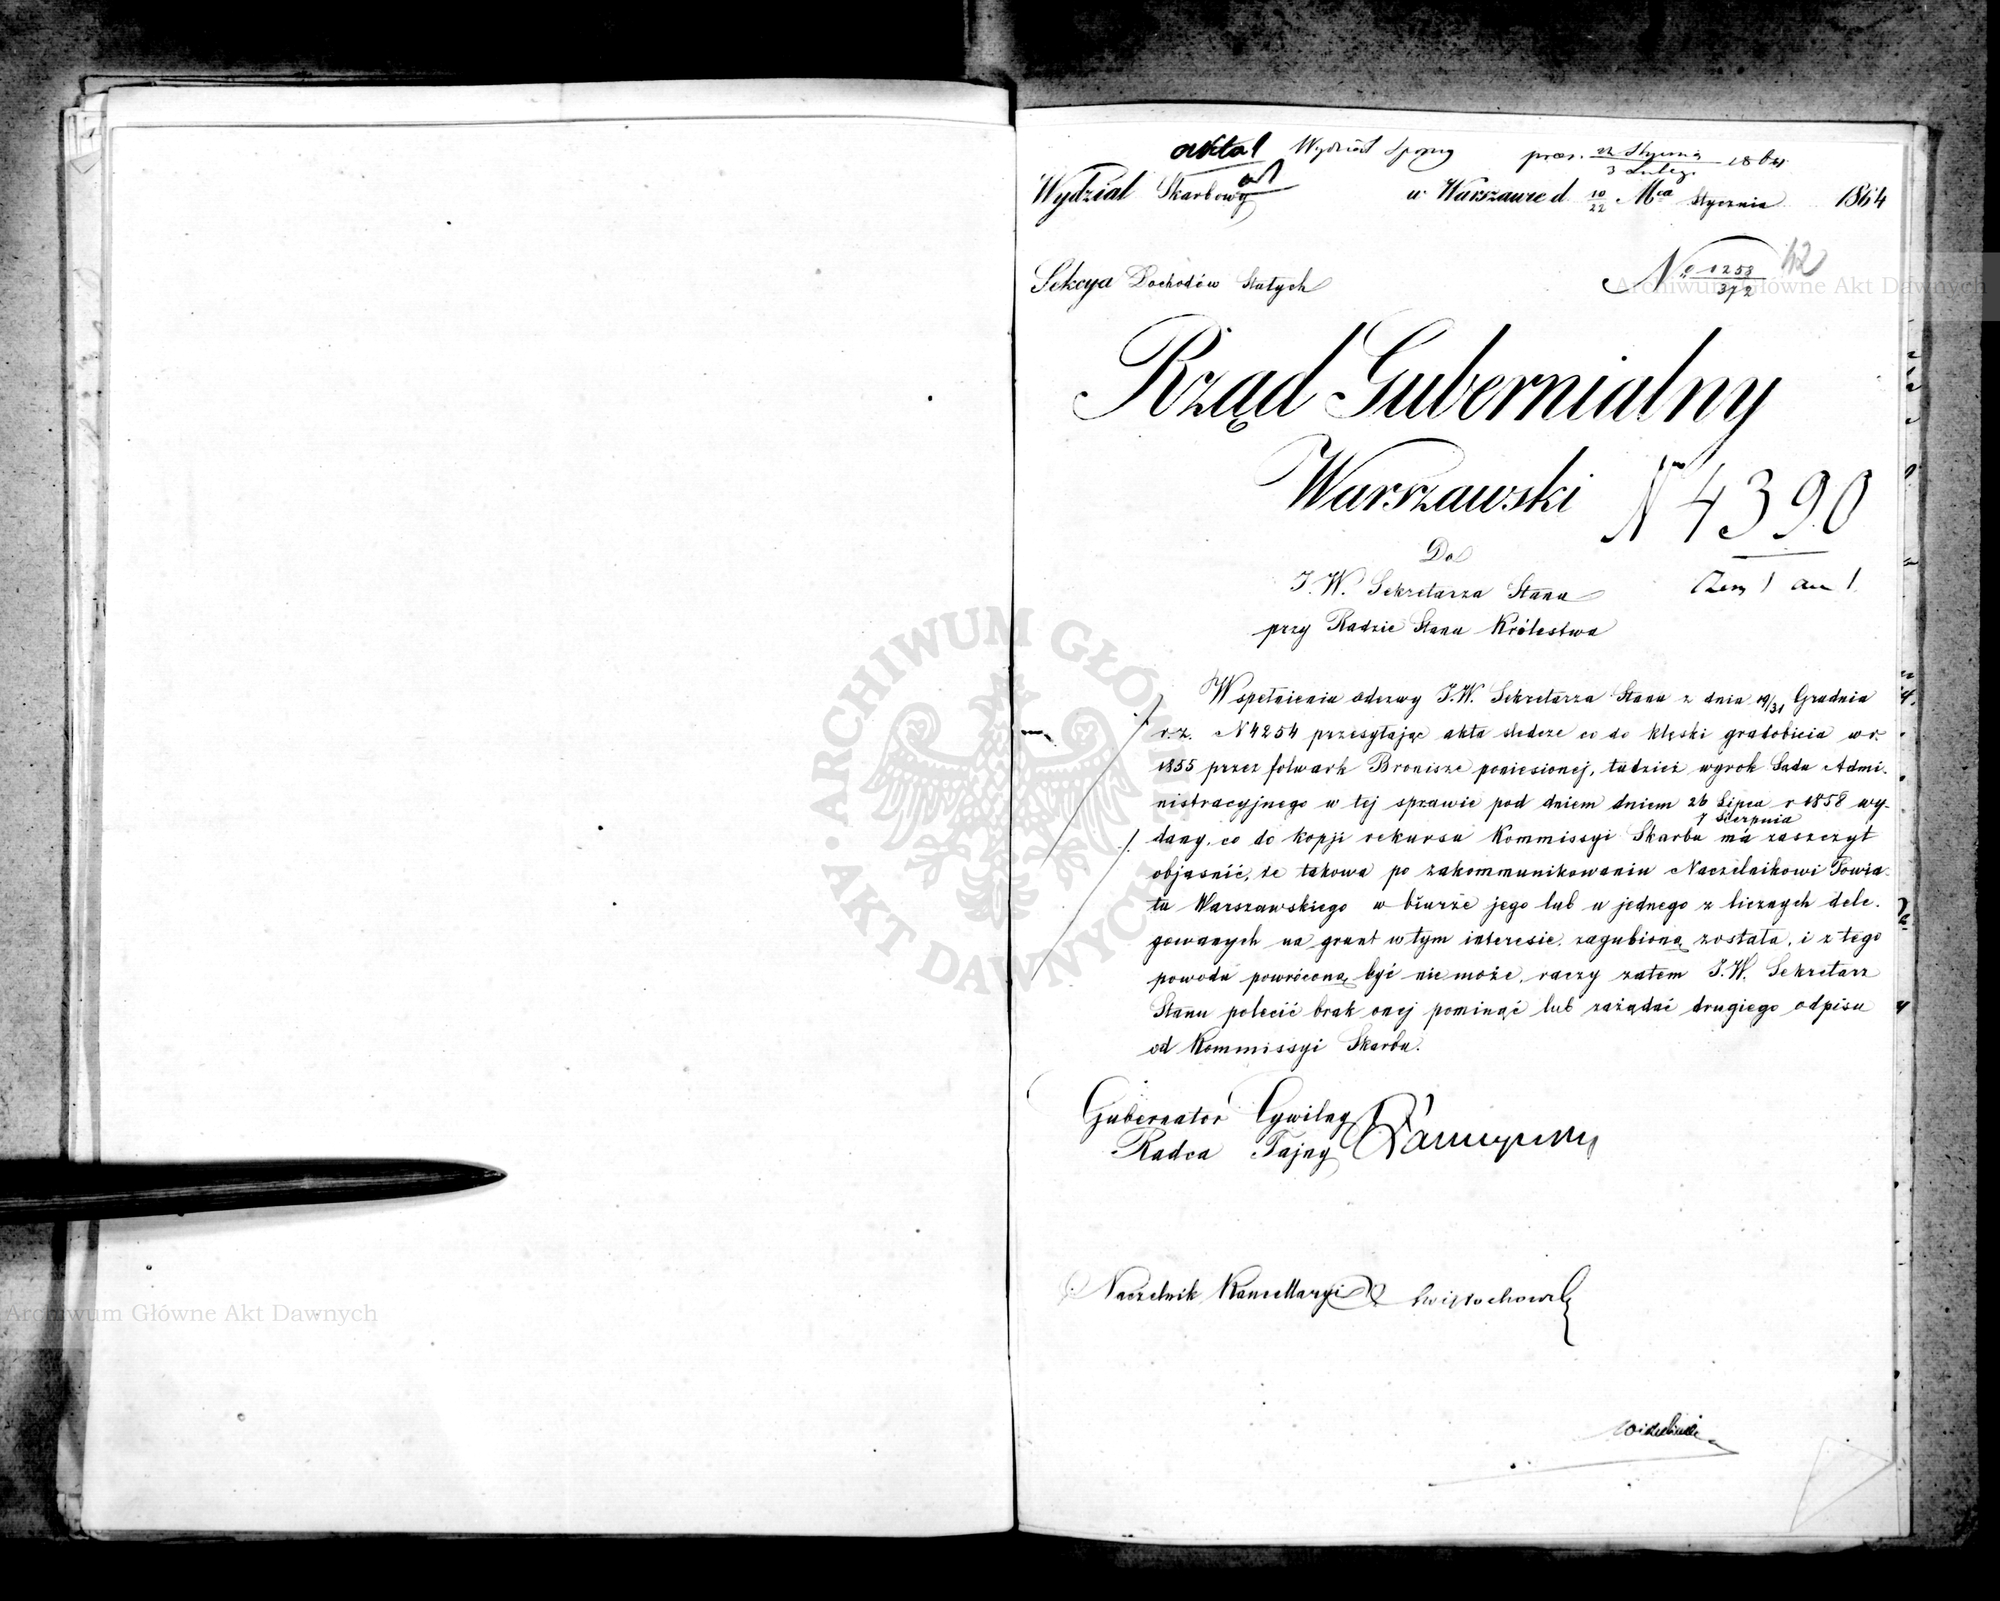 akta 1 Wydział Spraw praes. 22 Stycznia / 3 Lutego 1864
Wydział Skarbowy w Warszawie d. 10/22 Mca Stycznia 1864
Sekcya Dochodów Stałych
No 1258/372 42
Rząd Gubernialny
Warszawski N 4390
Do
J.W. Sekretarza Stanu
przy Radzie Stanu Królestwa
W spełnieniu odezwy J.W. Sekretarza Stanu z dnia 19/31 Grudnia
r. z. N 4254 przesyłając akta śledcze co do klęski gradobicia w r.
1855 przez folwark Bronisze poniesionej, tudzież wyrok Sądu Admi-
nistracyjnego w tej sprawie pod dniem dniem 26 Lipca r 1858 wy-
7 Sierpnia
dany, co do kopji rekursu Kommissyi Skarbu má zaszczyt
objasnić, że takowa po zakommunikowaniu Naczelnikowi Powia-
tu Warszawskiego w biurze jego lub u jednego z licznych dele-
gowanych na grunt w tym interesie, zagubioną została, i z tego
powodu powróconą być nie może, raczy zatem J.W. Sekretarz
Stanu polecić brak onej pominąć lub zażądać drugiego odpisu
od Kommissyi Skarbu.
Gubernator Cywilny
Radca Tajny
Naczelnik Kancellaryi Świętochowski
ARCHIWUM GŁÓWNE AKT DAWNYCH
Archiwum Główne Akt Dawnych
Archiwum Główne Akt Dawnych